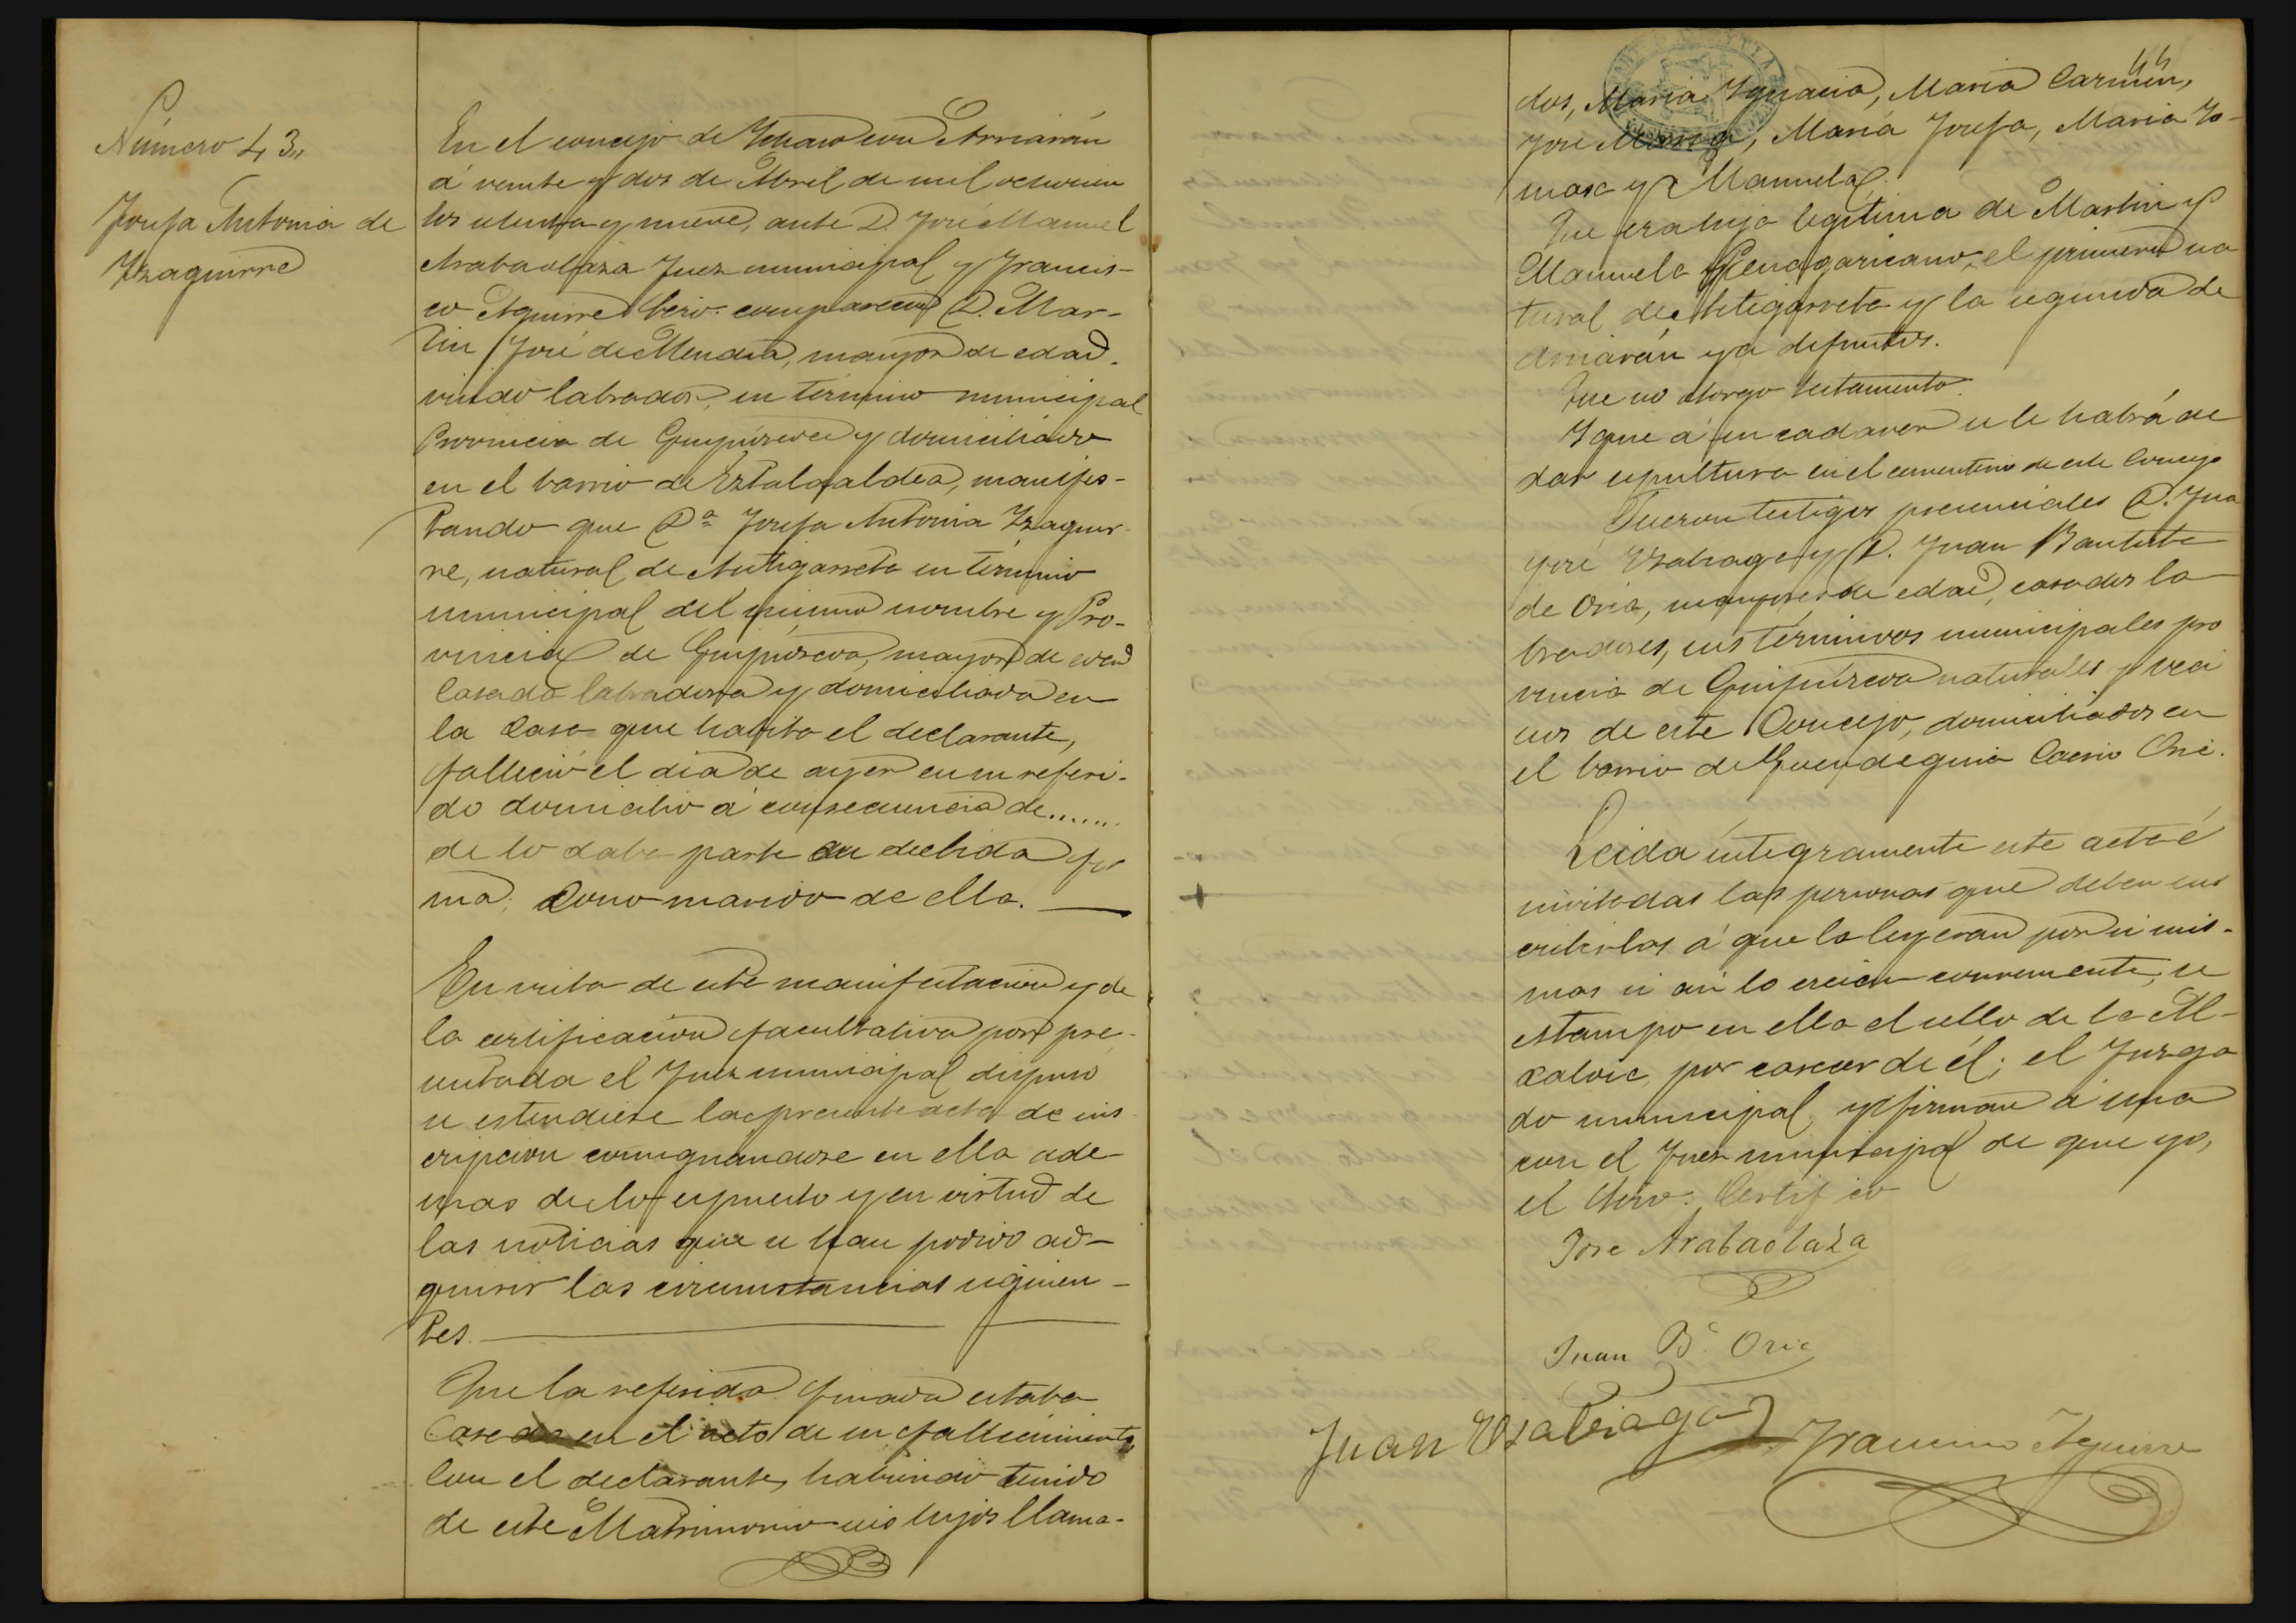 Número 43,,
Josefa Antonia de
Yzaguirre
En el concejo de Ychaso con Arriarán
á veinte y dos de Abril de mil ochocien
tos ochenta y nueve, ante D. José Manuel
Arabaolaza Juez municipal y Francis-
co Aguirre Secrio. compareció D. Mar-
tin José de Mendia, mayor de edad.
viudo labrador, en término municipal
Provincia de Guipúzcoa y domiciliado
en el barrio de Eztalaaldea, manifes-
tando que Da. Josefa Antonia Yzaguir-
re, natural de Astigarreta en término
municipal del mismo nombre y Pro-
vincia de Guipúzcoa, mayor de edad
Casada labradora y domiciliada en
la Casa que habita el declarante,
falleció el dia de ayer en su referi-
do domicilio á consecuencia de.......
de lo daba parte en debida for
ma, Como marido de ella.
En vista de esta manifestacion y de
la certificacion facultativa por pre-
sentada el Juez municipal dispuso
se estendiese la presente acta de ins
cripcion consignandose en ella ade-
mas de lo espuesto y en virtud de
las noticias que se han podido ad-
quirir las circunstancias siguien-
tes.
Que la referida finada estaba
Casada en el acto de su fallecimiento
Con el declarante, habiendo tenido
de este Matrimonio seis hijos llama-
44
dos, Maria Ygnacia, Maria Carmen,
José Maria, Maria Josefa, Maria To-
masa y Manuela.
Que era hija legitima de Martin y
Manuela Genagaricano, el primero na
tural de Astigarreta y la segunda de
Arriarán ya difuntos.
Que no otorgo testamento.
Y que á su cadaver se le habrá de
dar sepultura en el cementerio de este Concejo
Fueron testigos presenciales D. Jua
José Yzabiaga y D. Juan Bautista
de Oria, mayores de edad, casados la
bradores, sus términos municipales pro
vincia de Guipúzcoa naturales y veci
nos de este Concejo, domiciliados en
el barrio de Guendeguia Caserio Oria.
Leida íntegramente este acta é
invitadas las personas que deben sus
cribirlas á que la leyeran por si mis-
mas si asi lo creian conveniente, se
estampo en ella el sello de la Al-
caldia, por carecer de él; el Juzga
do municipal, y firman á una
con el Juez municipal de que yo,
el Secrio. Certifico
Jose Arabaolaza
Juan Ba. Oria
Juan Yzabiaga
Francisco Aguirre